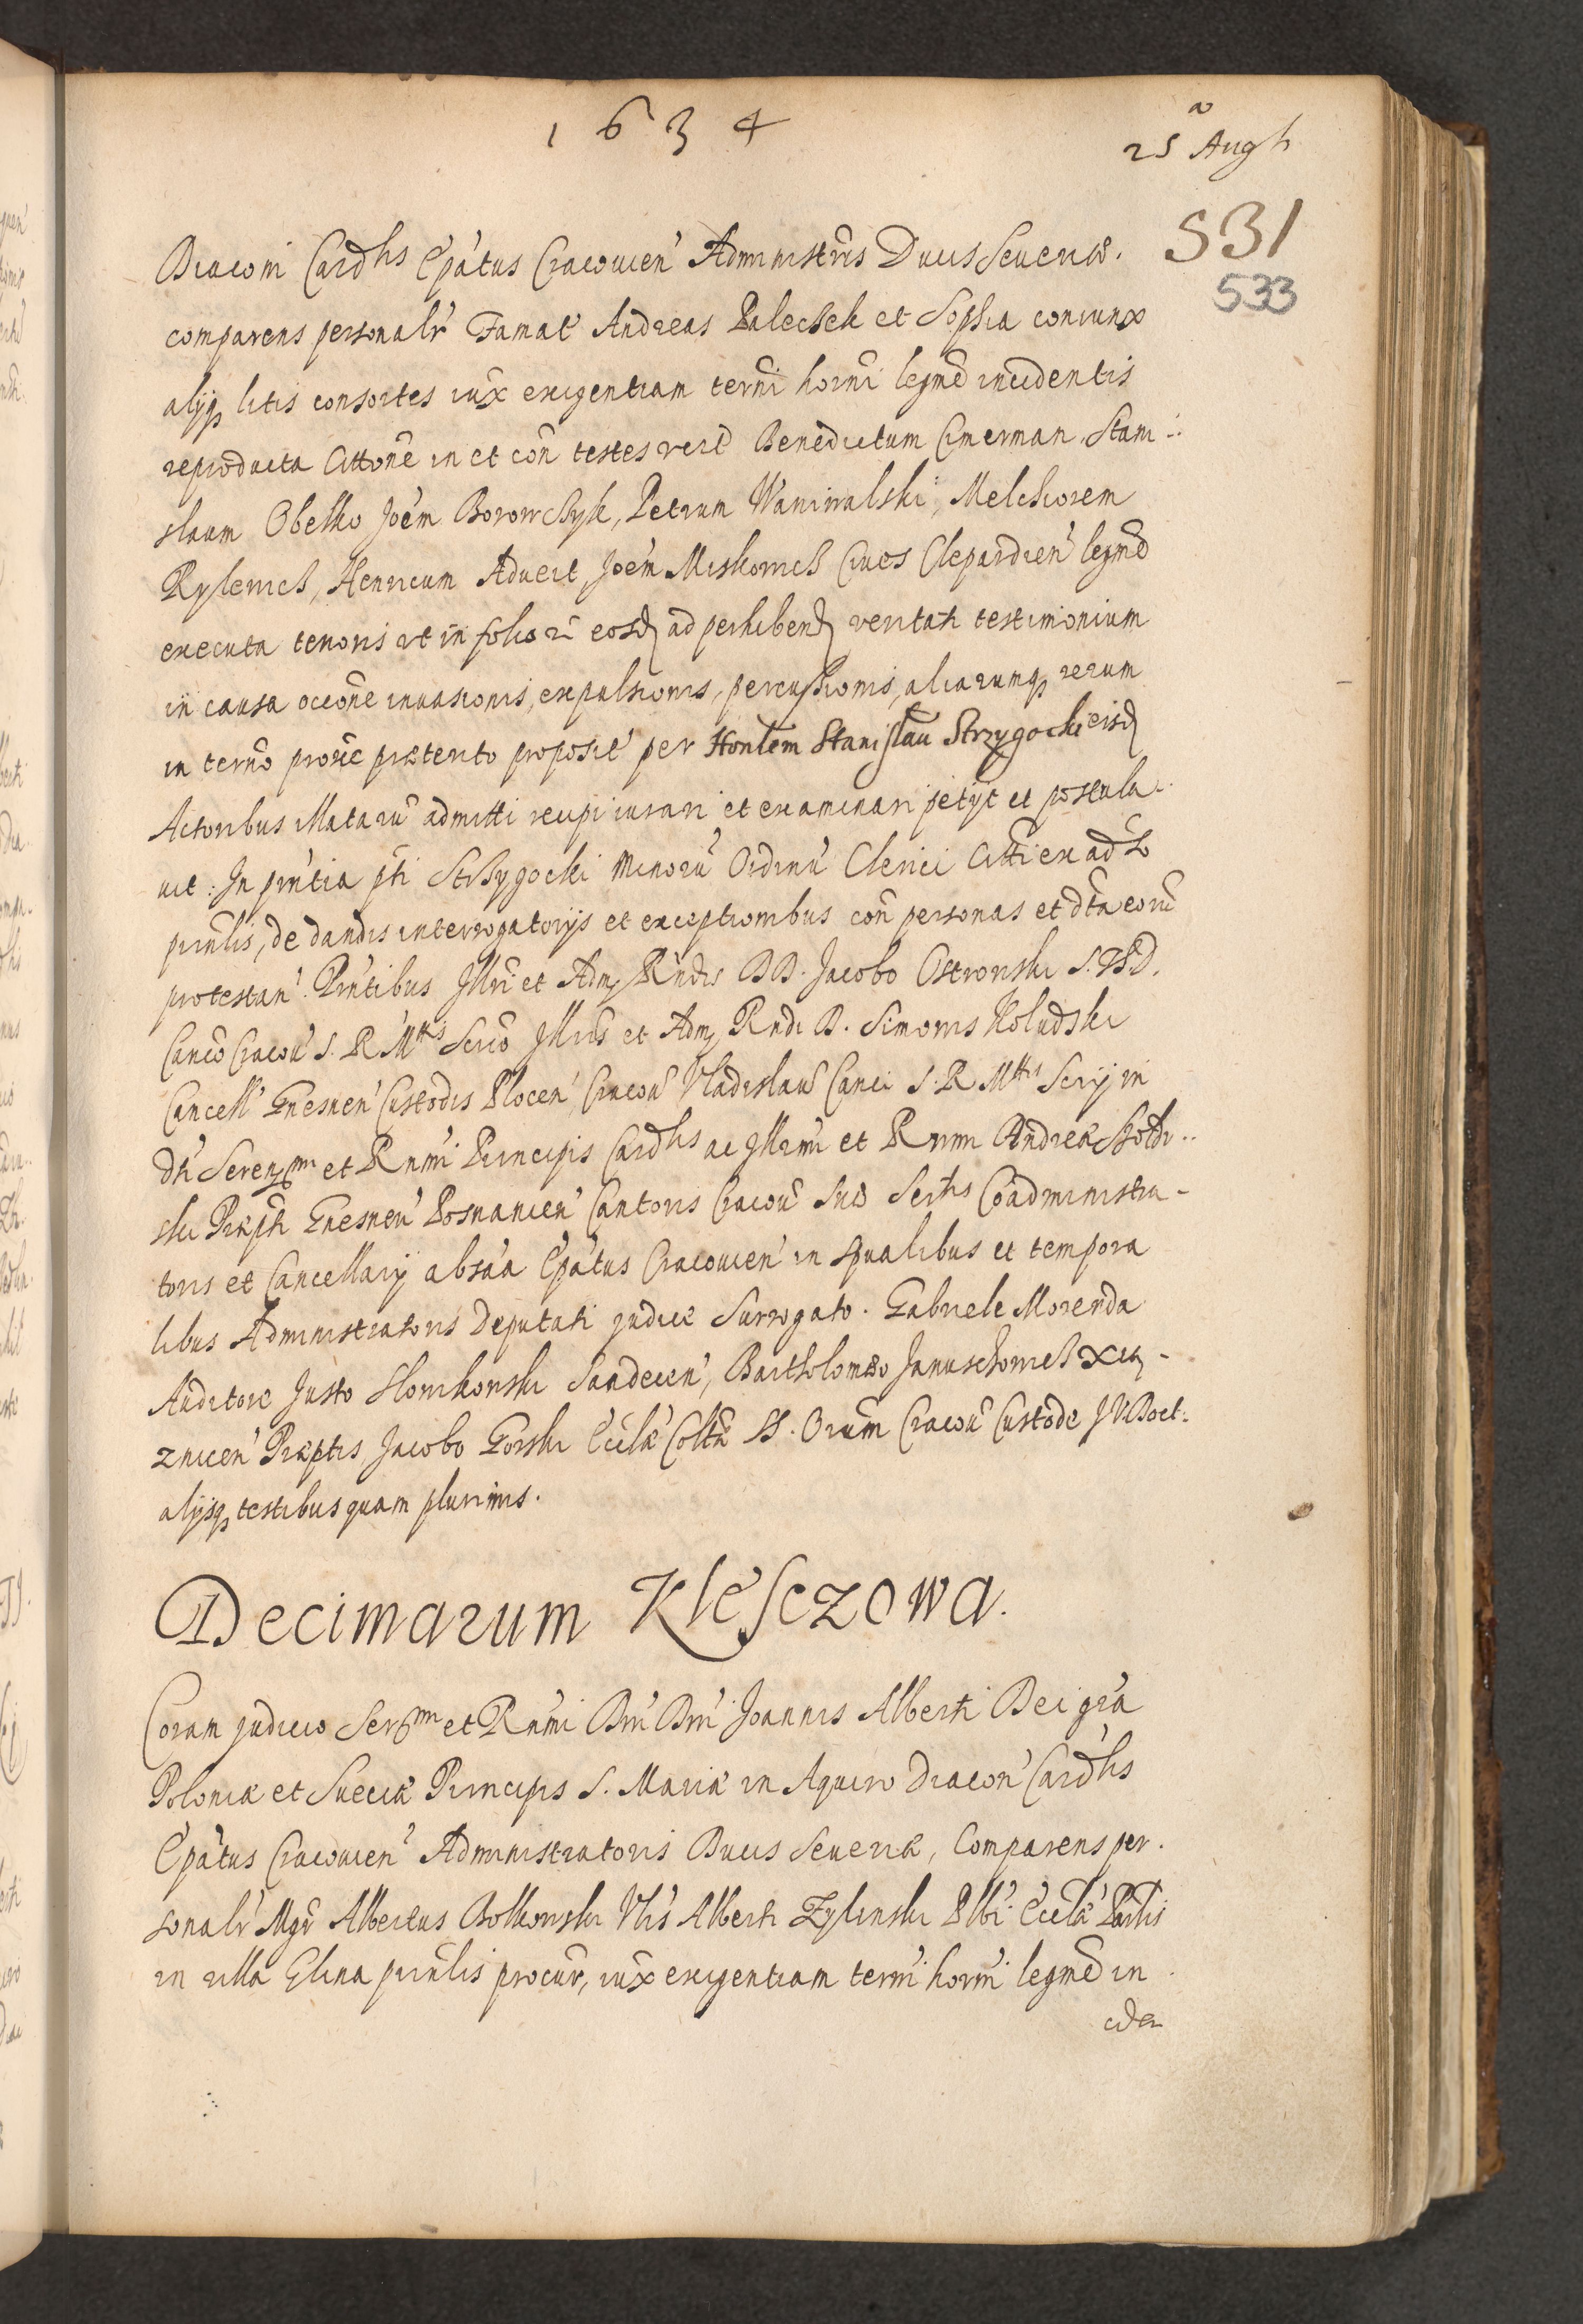 1634
25 a Augti
531
533
Diaconi Cardlis Epatus Cracovien Administris Ducis Severiæ.
comparens personalr Famat Andreas Paleczek et Sophia coniunx
alijq litis consortes iux exigentiam termi horni legmê incidentis
reproducta Cittone in et con testes vert Benedictum Cimerman Stani-
slaum Obelko Joem Borowczyk, Petrum Waniwalski, Melchiorem
Rylewicz, Henricum Advert, Joem Miskowicz Cives Clepardien legmê
executa tenoris ut in folio eosd ad perhibend veritati testimonium
in causa occone invasionis, expulsionis, percussionis, aliarumq rerum
in termo prove prætento proposit per Honlem Stanislau Strzygocki eisd
Actoribus Mataru admitti recipi iurari et examinari petijt et postula-
vit. In pntia pti Strzygocki Minoru Ordinu Clerici Citti ex adso
pnlis, de dandis interrogatorijs et exceptionibus con personas et dta eoru
protestan. Pntibus Illri et Adm Rndis DD. Jacobo Ostrowski
Canco Cracov S. R. Mttis Scrio Illris et Adm Rndi D. Simonis Kołudzki
Cancell Gnesnen Custodis Plocen, Cracov Vladislav Canci S. R. Mttis Scrij in
Sereniss et Rnmi Principis Cardlis ac Illrmi et Rnmi Andreæ Szołdr-
ski Præpti Gnesnen Posnanien Cantoris Cracov Suæ Sertis Coadministra-
toris et Cancellarij absa Epatus Cracovien in Spualibus et tempora
libus Administratoris Deputati judice Surrogato. Gabriele Morenda
Auditore Justo Słowikowski Sandecen, Bartholomæo Januschowicz Xią-
znicen Præptis, Jacobo Gorski Ecclæ Colltæ SS. Oium Cracov Custode JVDoct.
alijsq testibus quam plurimis.
Decimarum Klesczowa.
Coram judicio Serss et Rnmi Dni Dni Joannis Alberti Dei gra
Poloniæ et Sueciæ Principis S. Mariæ in Aquiro Diacon Cardlis
Epatus Cracovien Administratoris Ducis Severiæ, Comparens per-
sonalr Mgr Albertus Bolkowski Vlis Alberti Zylinski Plbi Ecclæ Parlis
in villa Glina pnlis procur, iux exigentiam termi horni legmê in
ciden